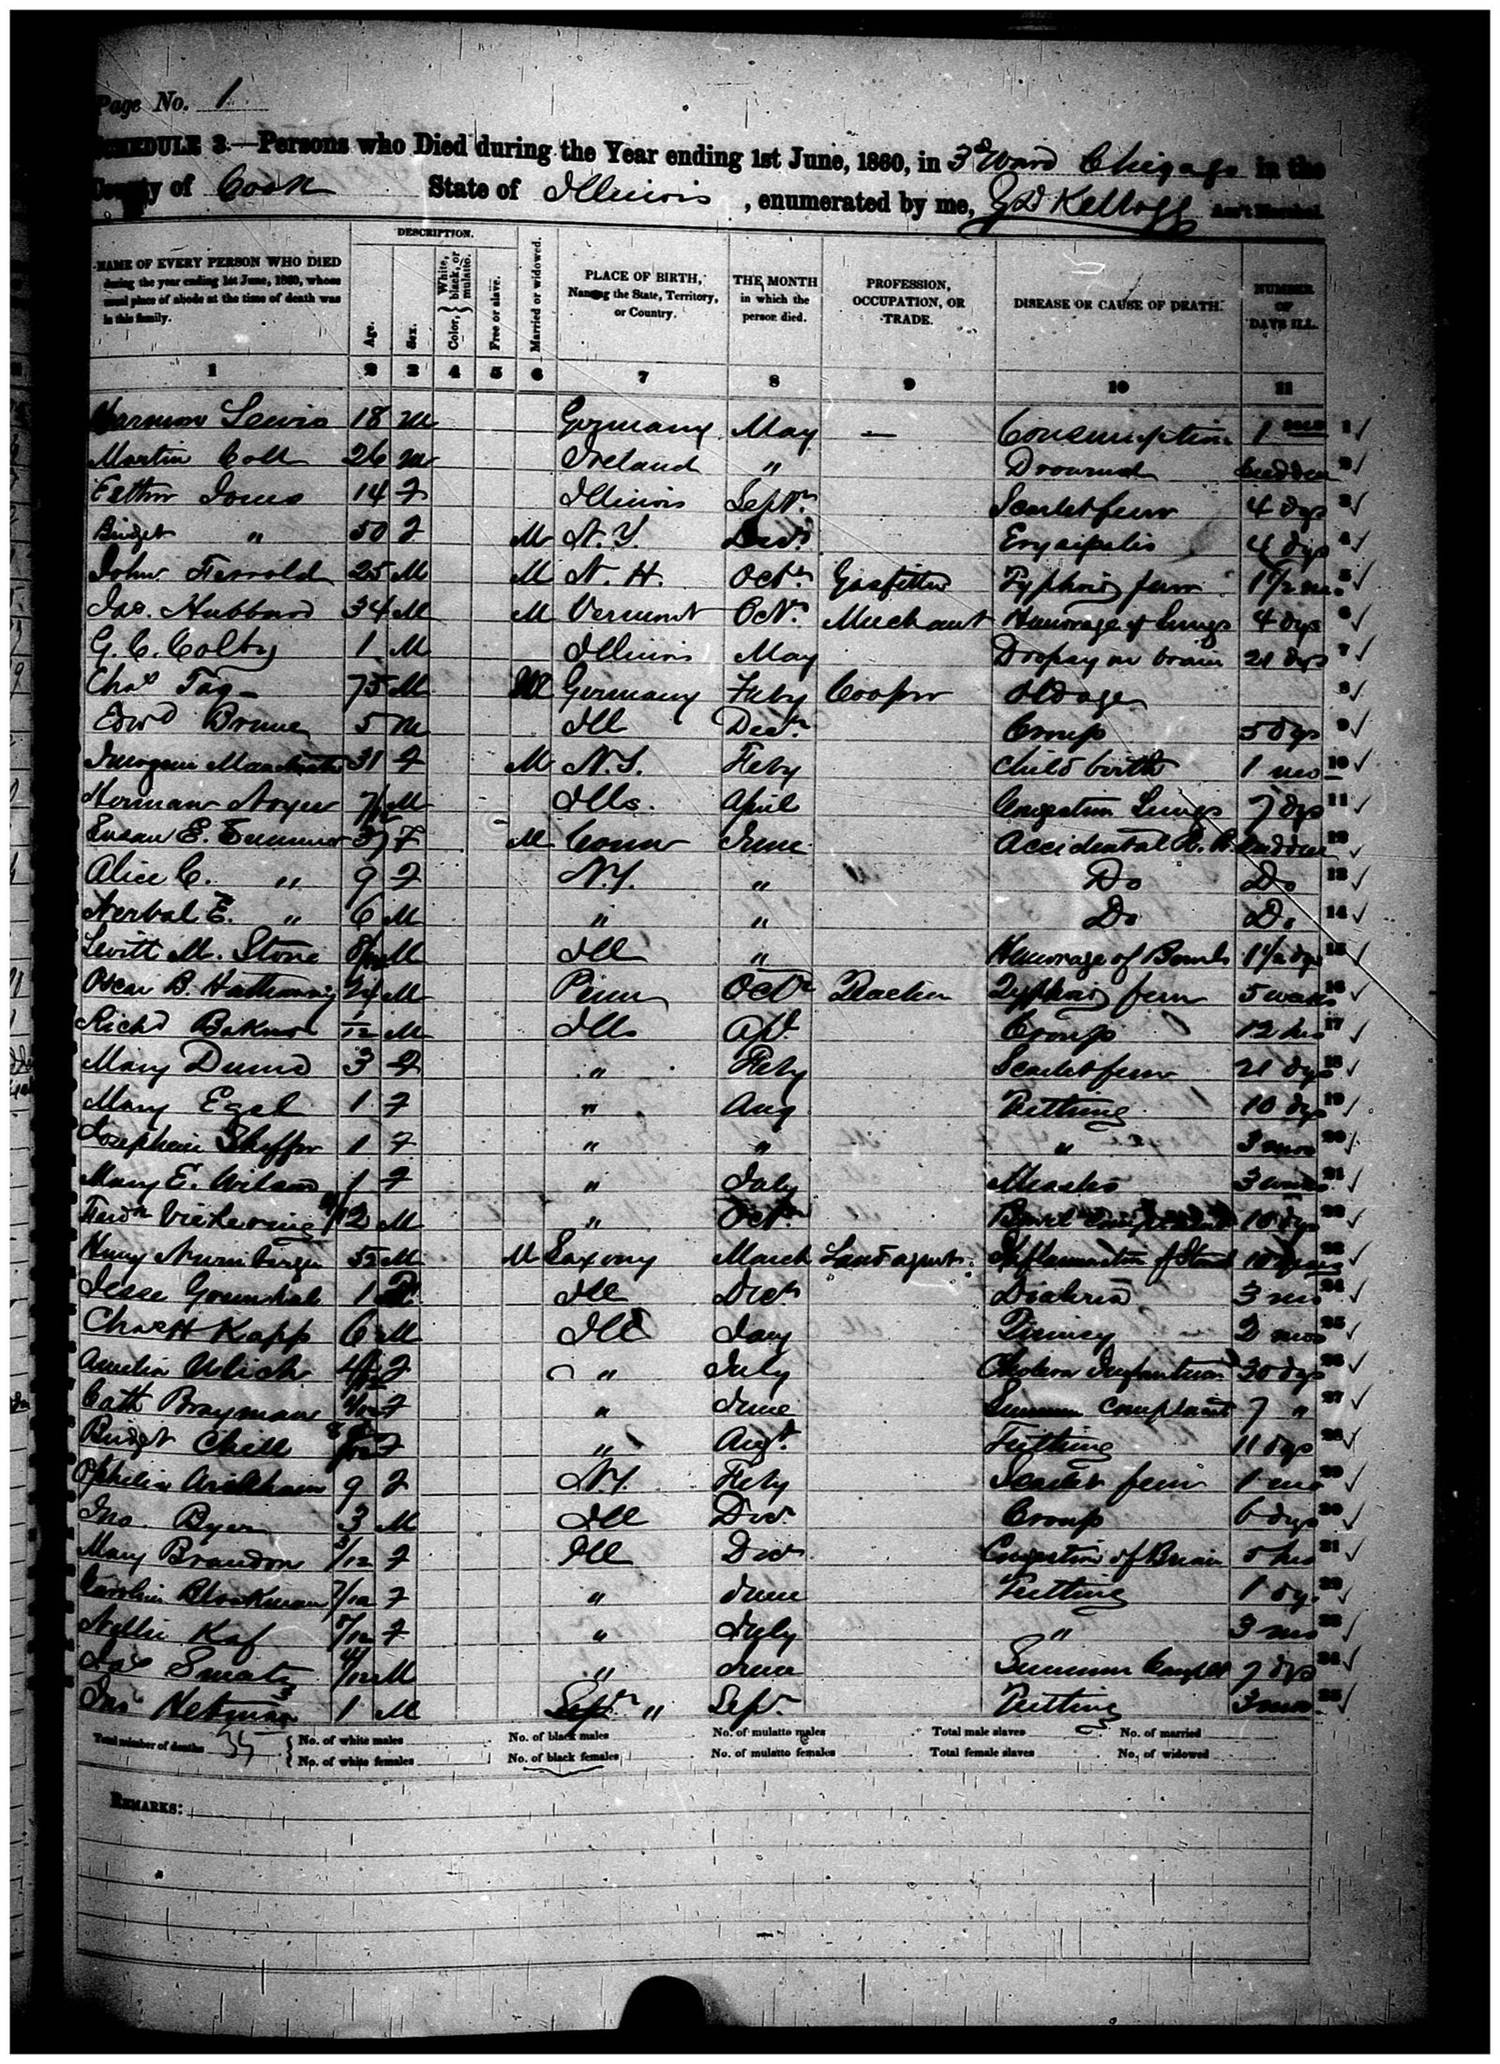 Page No. 1
SCHEDULE 3.—Persons who Died during the Year ending 1st June, 1860, in 3d Ward Chicago in the
County of Cook State of Illinois, enumerated by me, Kellogg Ass't Marshal.
NAME OF EVERY PERSON WHO DIED during the year ending 1st June, 1860, whose usual place of abode at the time of death was in this family.
DESCRIPTION.
Age. Sex. Color, White, black, or mulatto. Free or slave. Married or widowed.
PLACE OF BIRTH, Naming the State, Territory, or Country.
THE MONTH in which the person died.
PROFESSION, OCCUPATION, OR TRADE.
DISEASE OR CAUSE OF DEATH.
NUMBER OF DAYS ILL.
1 2 3 4 5 6 7 8 9 10 11
Harmon Lewis 18 M Germany May — Consumption 1 mo 1 ✓
Martin 26 M Ireland " Drowned Sudden 2 ✓
Esther Jones 14 F Illinois Sept. Scarlet fever 4 dys 3 ✓
Bridget " 50 F M N.Y. Erysipelis 4 dys 4 ✓
John Ferrold 25 M M N. H. Oct. Gasfitter Typhoid fever 1 1/2 mo. 5 ✓
Jas. Hubbard 34 M M Vermont Oct. Merchant Hemorage of Lungs 4 dys 6 ✓
G. C. Colby 1 M Illinois May Dropsy on brain 21 dys 7 ✓
Chas Tag 75 M M Germany Feby Cooper Old age 8 ✓
Edwd Brune 5 M Ill Dec. Croup 5 dys 9 ✓
Imogene 31 F M N.Y. Feby Child birth 1 mo 10 ✓
Herman Noyes 7/12 M Ills. April Congestion Lungs 7 dys 11 ✓
Susan E. 37 F M Conn June Accidental R. R. Sudden 12 ✓
Alice C. " 9 F N.Y. " Do Do 13 ✓
E. " 6 M " " Do Do 14 ✓
M. Stone 8/12 M Ill " Hemorage of Bowels 1 1/2 dys 15 ✓
Oscar B. Hathaway 24 M Penn Oct Typhoid fever 5 weeks 16 ✓
Richd 1/12 M Ills Apl. Croup 12 hrs 17 ✓
Mary 3 F " Feby Scarlet fever 21 dys 18 ✓
Mary Egel 1 F " Aug Teething 10 dys 19 ✓
Josephine Sheffer 1 F " " " 3 mos 20 ✓
Mary E. Wilson 1 F " July Measles 3 weeks 21 ✓
Ferdn M " Oct. 10 dys 22 ✓
Henry 52 M M Saxony March Land agent Inflammation of 10 23 ✓
Jesse 1 Ill Dec. 3 mo 24 ✓
Chas H Kapp 6 M Ill Jany 2 mos 25 ✓
Amelia Ulich F " July Cholera Infantum 30 dys 26 ✓
Cath Brayman F " June Summer complaint 7 " 27 ✓
Bridget Chill F " Augt. Teething 11 dys 28 ✓
Ophelia 9 F N.Y. Feby Scarlet fever 1 mo 29 ✓
Jno. Byer 3 M Ill Dec. Croup 6 dys 30 ✓
Mary Brandon 3/12 F Ill Dec Congestion of Brain 5 hrs 31 ✓
Caroline Blockman 7/12 F " June Teething 1 dy. 32 ✓
Nellie Kaf F " July " 3 mo 33 ✓
Jas M " June Summer 7 dys 34 ✓
Jno 1 M " Sep. Teething 3 mos. 35 ✓
Total number of deaths 35 No. of white males No. of black males No. of mulatto males Total male slaves No. of married
No. of white females No. of black females No. of mulatto females Total female slaves No. of widowed
REMARKS: